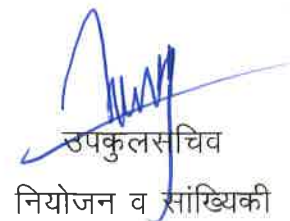 उपकुलसचिव
नियोजन व सांख्यिकी